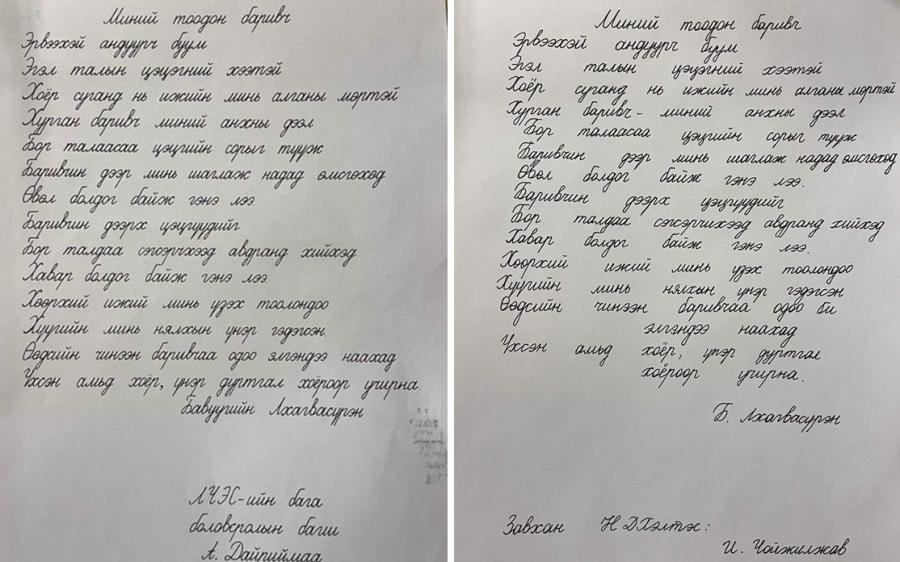 Миний тоодон баривч
Эрвээхэй андуурч буум
Эгэл талын цэцэгний хээтэй
Хоёр суганд нь ижийн минь алганы мөртэй
Хурган баривч миний анхны дээл
Бор талаасаа цэцгийн сорыг түүж
Баривчин дээр минь шаглаж надад өмсгөхөд
Өвөл болдог байж гэнэ лээ
Баривчин дээрх цэцгүүдийг
Бор талдаа сэгсэрчхээд авдранд хийхэд
Хавар болдог байж гэнэ лээ
Хөөрхий ижий минь үзэх тоолондоо
Хүүгийн минь нялхын үнэр гэдэгсэн.
Өөдсийн чинээн баривчаа одоо элгэндээ наахад
Үхсэн амьд хоёр, үнэр дуртгал хоёроор учирна.
Бавуугийн Лхагвасүрэн
ЛЧЭС-ийн бага
боловсролын багш
А. Дайриймаа
Миний тоодон баривч
Эрвээхэй андуурч буум
Эгэл талын цэцэгний хээтэй
Хоёр суганд нь ижийн минь алганы мөртэй
Хурган баривч - миний анхны дээл
Бор талаасаа цэцгийн сорыг түүж
Баривчин дээр минь шаглаж надад өмсгөхөд
Өвөл болдог байж гэнэ лээ.
Баривчин дээрх цэцгүүдийг
Бор талдаа сэгсэрчихээд авдранд хийхэд
Хавар болдог байж гэнэ лээ.
Хөөрхий ижий минь үзэх тоолондоо
Хүүгийн минь нялхын үнэр гэдэгсэн
Өөдсийн чинээн баривчаа одоо би
элгэндээ наахад
Үхсэн амьд хоёр, үнэр дуртгал
хоёроор учирна.
Б. Лхагвасүрэн
Завхан Н ДХэлтэс:
И. Чойжилжав